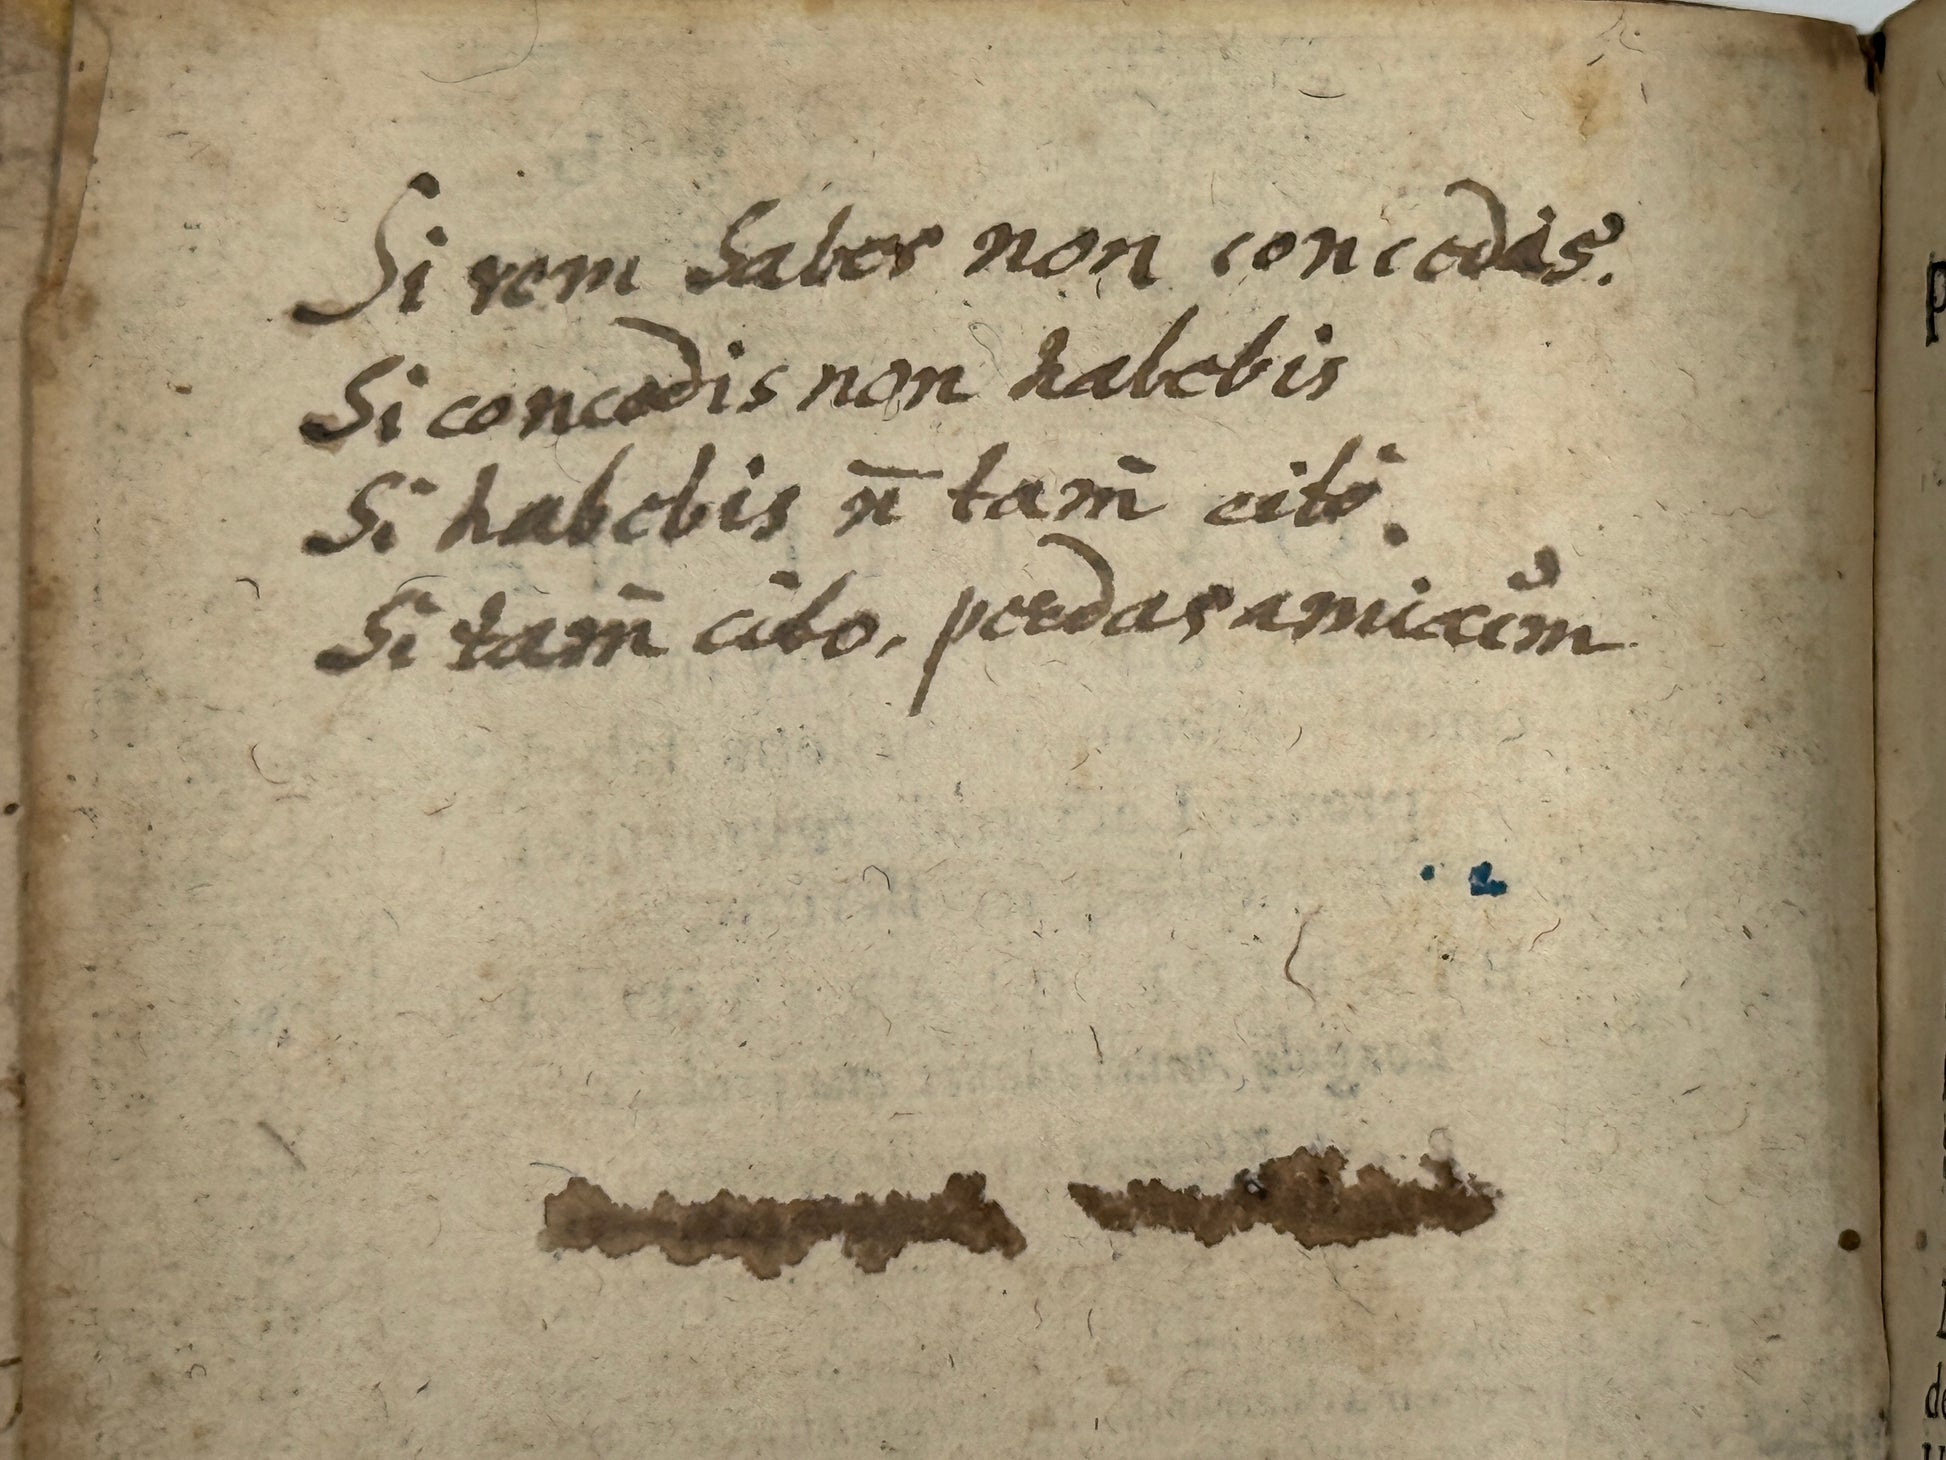 Si rem habes non concedas.
Si concedis non habebis
Si habebis n̄ tam̄ citò.
Si tam̄ cito, perdas amicũm